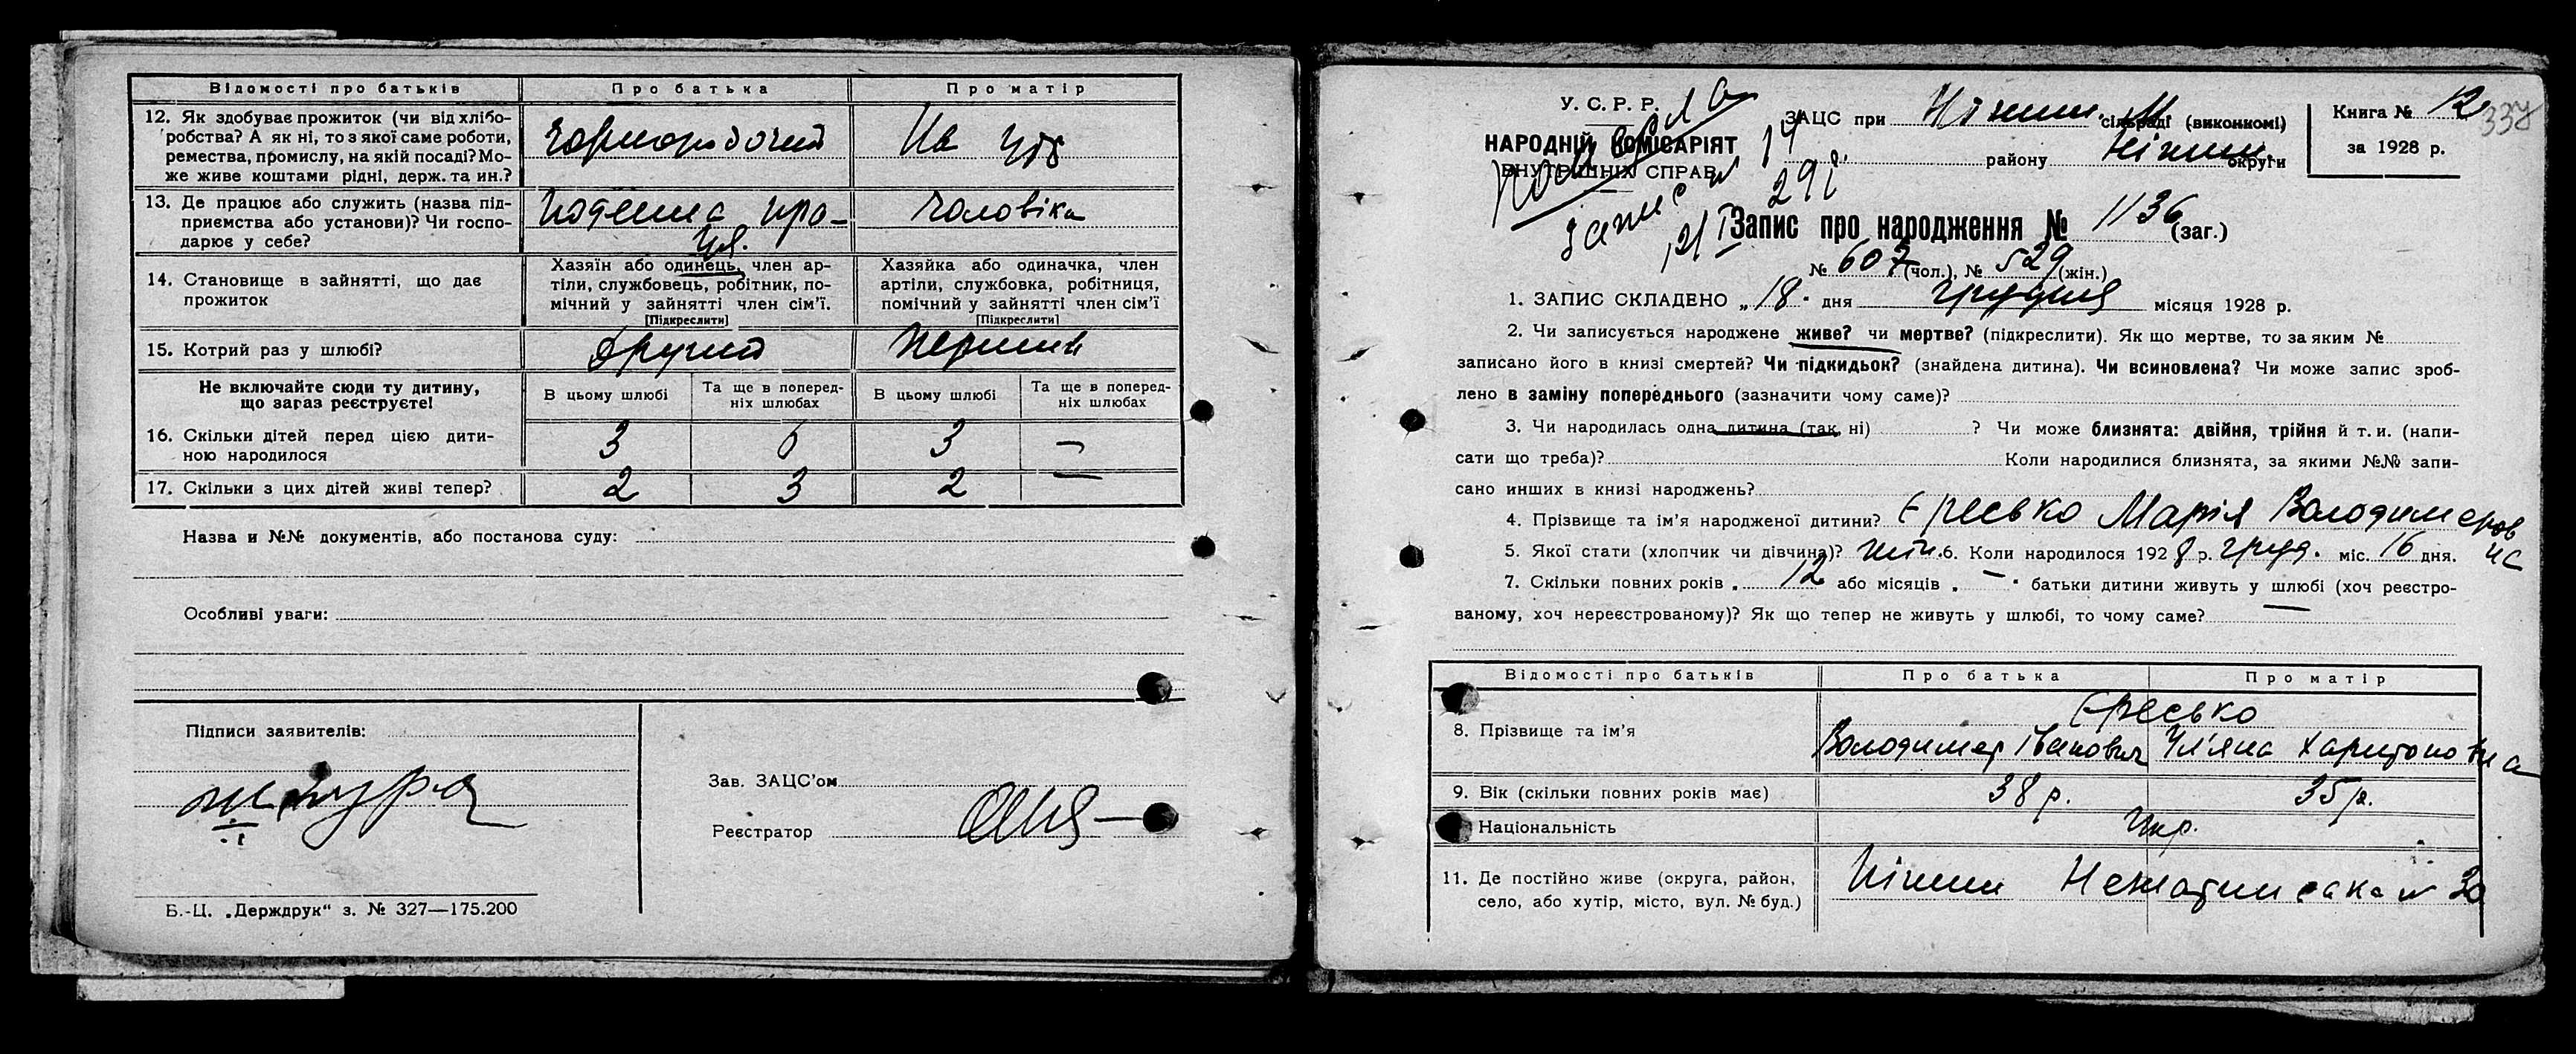 Відомості про батьків Про батька Про матір
12. Як здобуває прожиток (чи від хлібо-
робства? А як ні, то з якої саме роботи,
ремества, промислу, на якій посаді? Мо-
же живе коштами рідні, держ. та ин.?
чорноробочий На утр
13. Де працює або служить (назва під-
приємства або установи)? Чи госпо-
дарює у себе?
поденна пра-
ця.
чоловіка
14. Становище в зайнятті, що дає
прожиток
Хазяїн або одинець, член ар-
тіли, службовець, робітник, по-
мічний у зайнятті член сім'ї.
[Підкреслити]
Хазяйка або одиначка, член
артіли, службовка, робітниця,
помічний у зайнятті член сім'ї
[Підкреслити]
15. Котрий раз у шлюбі? другий перший
Не включайте сюди ту дитину,
що загаз реєструєте!
В цьому шлюбі
Та ще в поперед-
ніх шлюбах
В цьому шлюбі
Та ще в поперед-
ніх шлюбах
16. Скільки дітей перед цією дити-
ною народилося
3 6 3 —
17. Скільки з цих дітей живі тепер? 2 3 2 —
Назва и №№ документів, або постанова суду:
Особливі уваги:
Підписи заявителів:
Зав. ЗАЦС'ом
Реєстратор
Б.-Ц. „Держдрук“ з. № 327—175.200
У. С. Р. Р.
НАРОДНІЙ КОМІСАРІЯТ
ВНУТРІШНІХ СПРАВ
запис
ЗАЦС при Ніжин. М сільраді (виконкомі)
району Ніжин. округи
Книга № 12
за 1928 р.
338
Запис про народження № 1136 (заг.)
№ 607 (чол.), № 529 (жін.)
1. ЗАПИС СКЛАДЕНО „18“ дня грудня місяця 1928 р.
2. Чи записується народжене живе? чи мертве? (підкреслити). Як що мертве, то за яким №
записано його в книзі смертей? Чи підкидьок? (знайдена дитина). Чи всиновлена? Чи може запис зроб-
лено в заміну попереднього (зазначити чому саме)?
3. Чи народилась одна дитина (так, ні) ? Чи може близнята: двійня, трійня й т. и. (напи-
сати що треба)? Коли народилися близнята, за якими №№ запи-
сано инших в книзі народжень?
4. Прізвище та ім'я народженої дитини? Єресько Марія Володимеров
на
5. Якої стати (хлопчик чи дівчина)? жін. 6. Коли народилось 1928 р. груд. міс. 16 дня.
7. Скільки повних років „ 12 або місяців „ — “ батьки дитини живуть у шлюбі (хоч реєстро-
ваному, хоч нереєстрованому)? Як що тепер не живуть у шлюбі, то чому саме? —
Відомості про батьків Про батька Про матір
8. Прізвище та ім'я
Єресько
Володимер Іванович Уляна Харитоновна
9. Вік (скільки повних років має) 38 р. 35 р.
Національність Укр.
11. Де постійно живе (округа, район,
село, або хутір, місто, вул. № буд.)
Ніжин